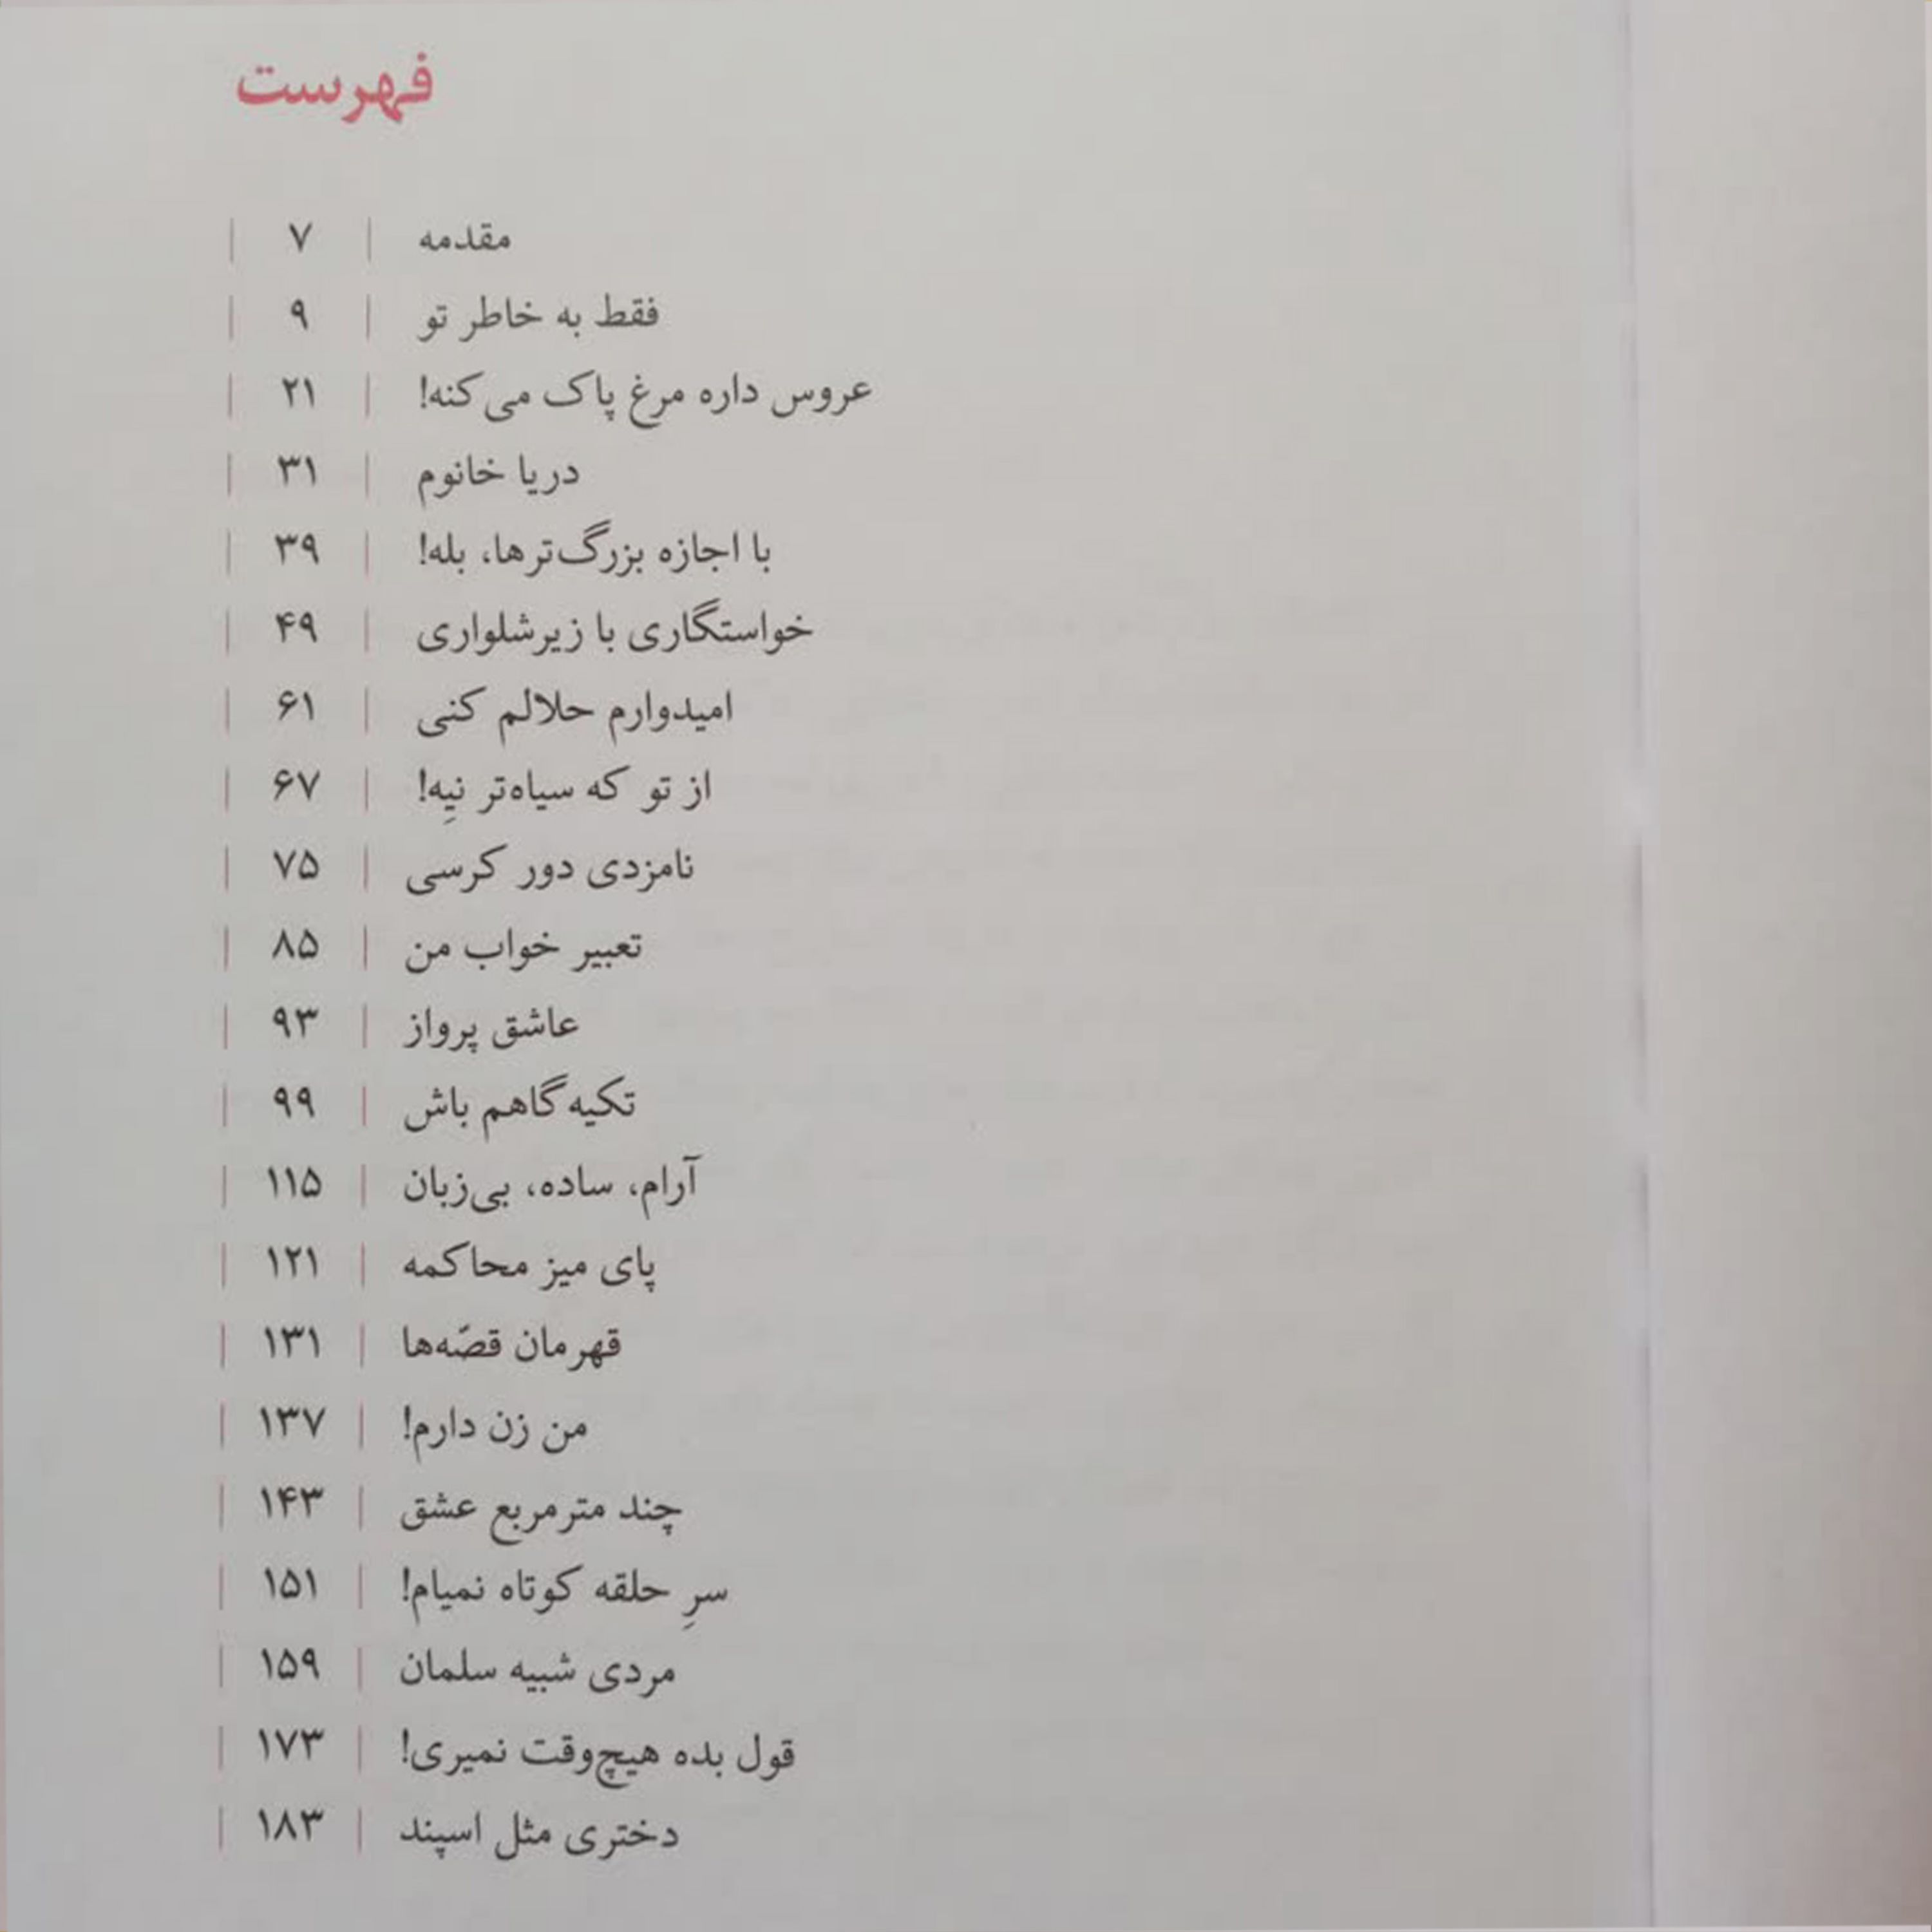 فهرست
مقدمه | ۷ |
فقط به خاطر تو | ۹ |
عروس داره مرغ پاک می‌کنه! | ۲۱ |
دریا خانوم | ۳۱ |
با اجازه بزرگ‌ترها، بله! | ۳۹ |
خواستگاری با زیرشلواری | ۴۹ |
امیدوارم حلالم کنی | ۶۱ |
از تو که سیاه‌تر نیِه! | ۶۷ |
نامزدی دور کرسی | ۷۵ |
تعبیر خواب من | ۸۵ |
عاشق پرواز | ۹۳ |
تکیه‌گاهم باش | ۹۹ |
آرام، ساده، بی‌زبان | ۱۱۵ |
پای میز محاکمه | ۱۲۱ |
قهرمان قصّه‌ها | ۱۳۱ |
من زن دارم! | ۱۳۷ |
چند مترمربع عشق | ۱۴۳ |
سرِ حلقه کوتاه نمیام! | ۱۵۱ |
مردی شبیه سلمان | ۱۵۹ |
قول بده هیچ‌وقت نمیری! | ۱۷۳ |
دختری مثل اسپند | ۱۸۳ |